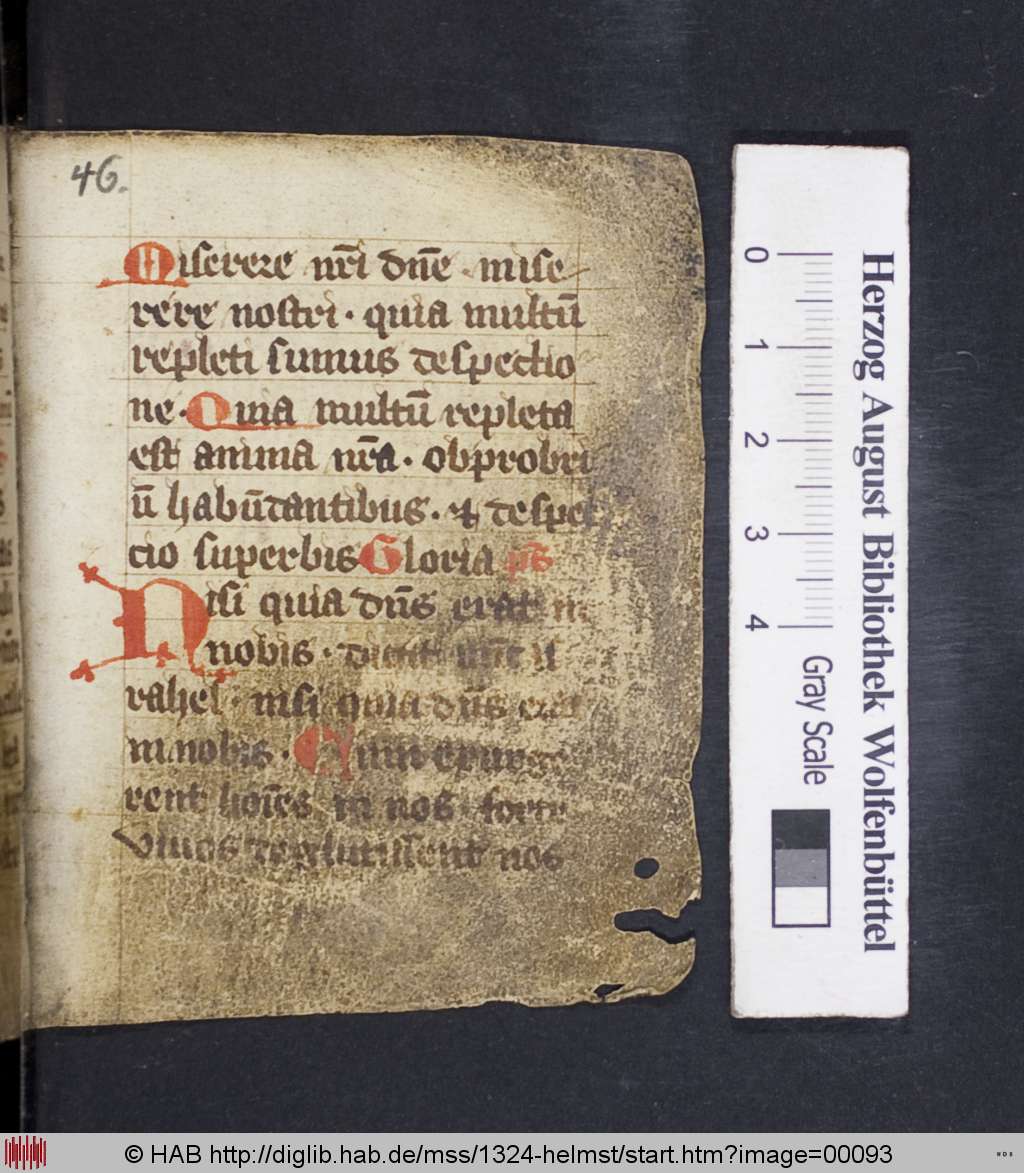 46.
Miserere nr̄i dn̄e · mise
rere nostri · quia multū
repleti sumus despectio
ne · Quia multū repleta
est anima nr̄a · obprobri
ū habūdantibus · ⁊ despec
cio superbis Gloria ps̄
Nisi quia dn̄s erat in
nobis · dicat nūc is
rahel · nisi quia dn̄s erat
in nobis · Cum exurge
rent hoīes in nos · forte
vivos deglutissent nos
Herzog August Bibliothek Wolfenbüttel
0 1 2 3 4
Gray Scale
© HAB http://diglib.hab.de/mss/1324-helmst/start.htm?image=00093